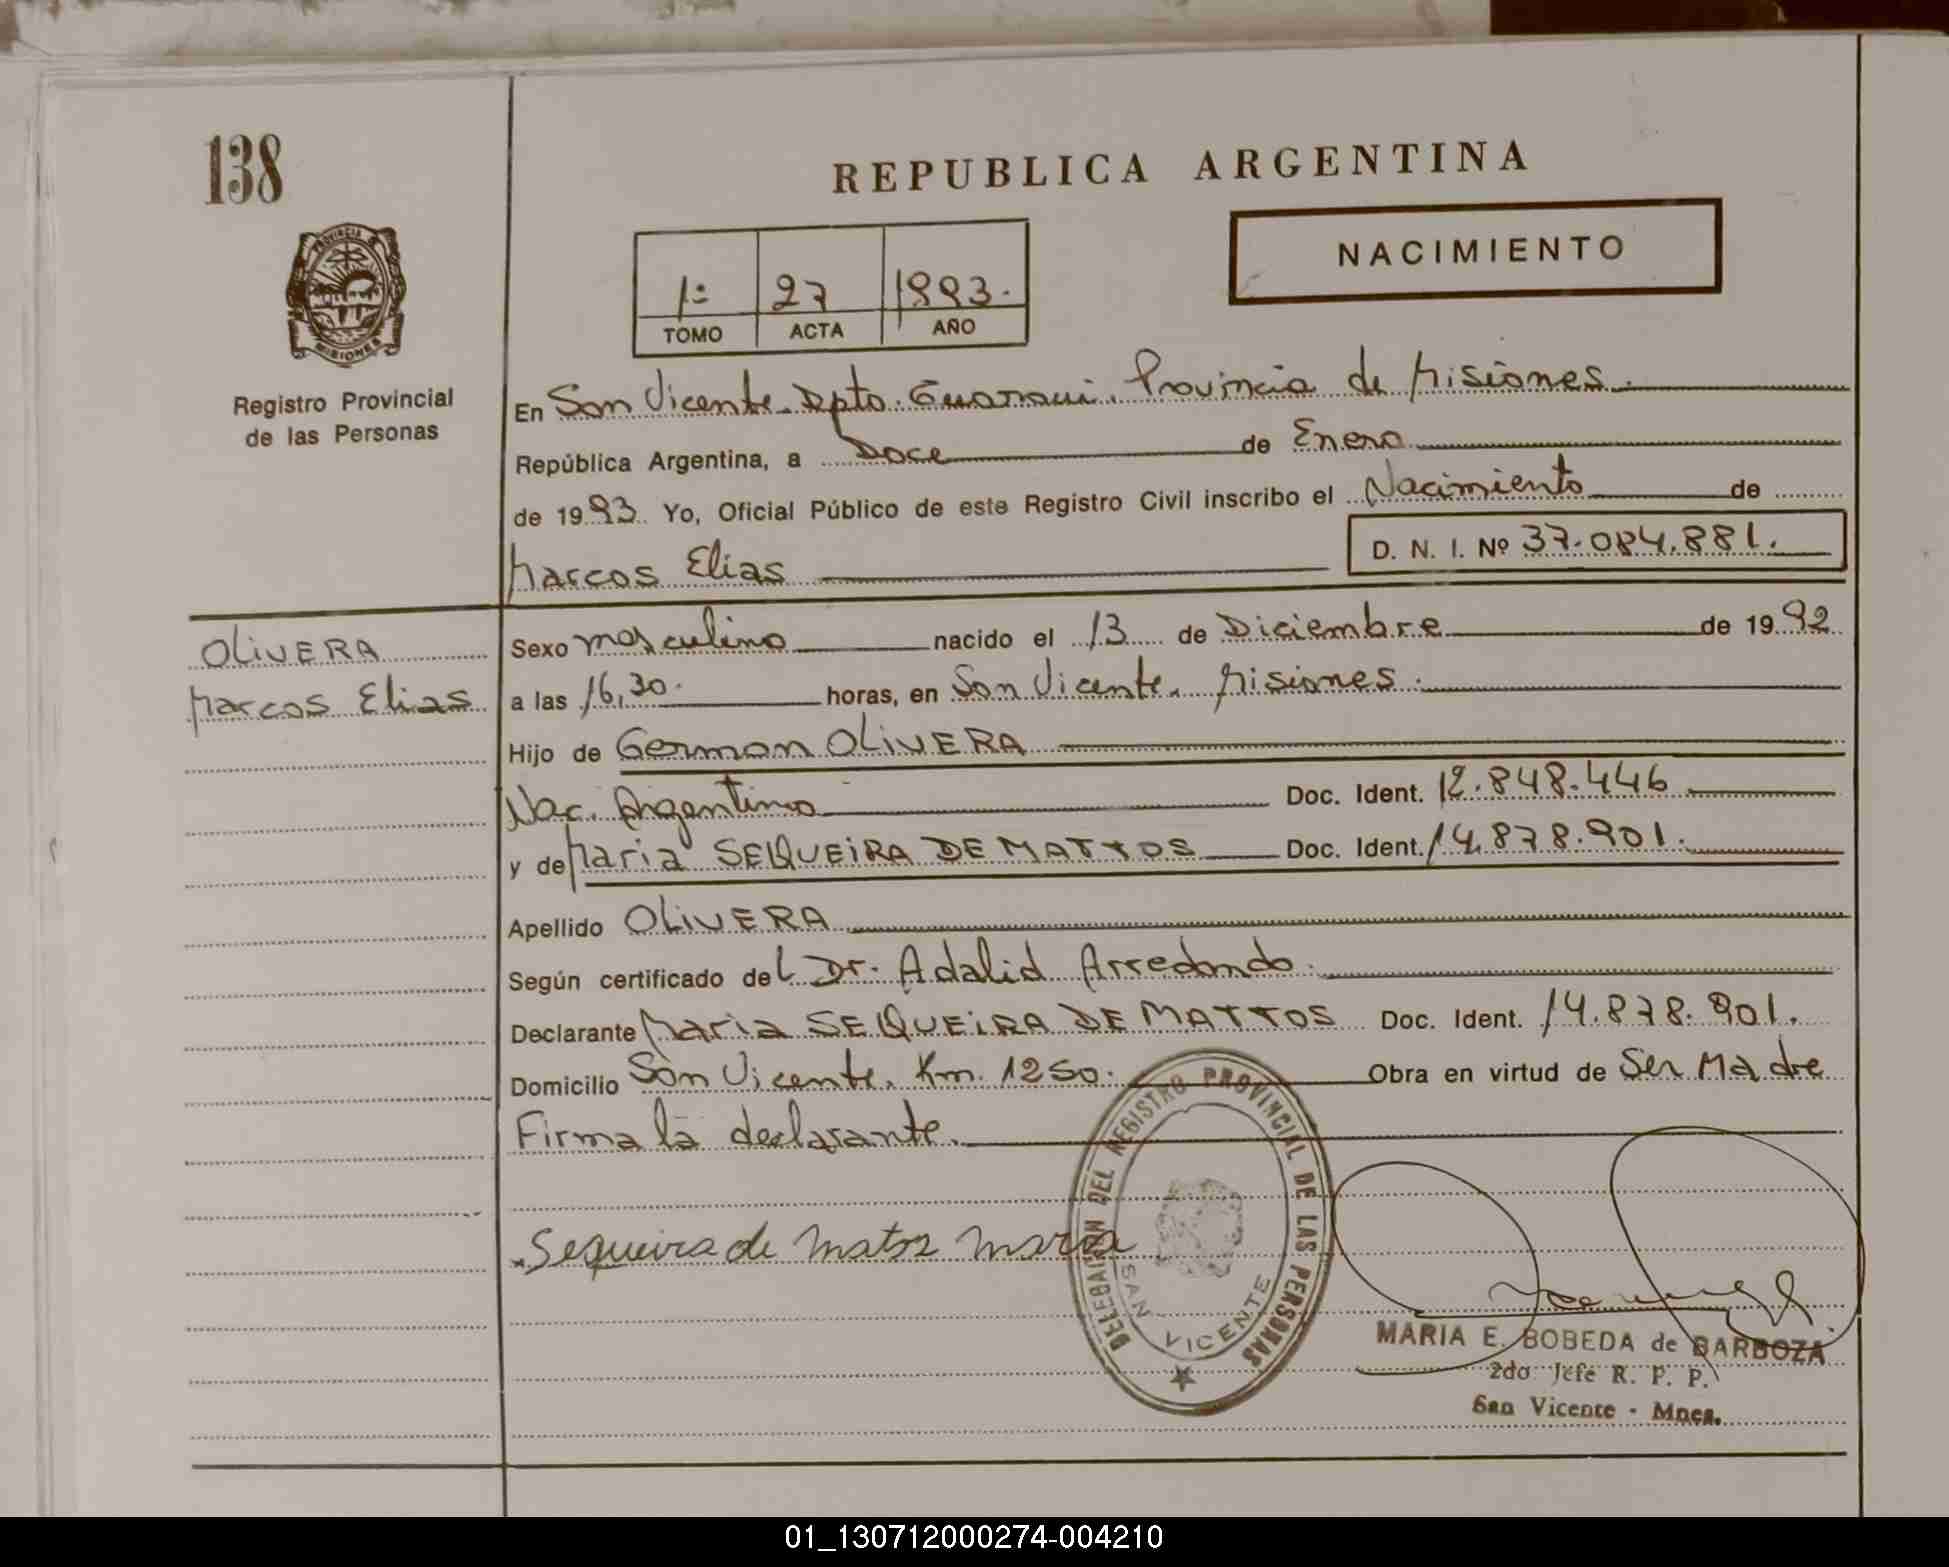 138
REPUBLICA ARGENTINA
PROVINCIA D
MISIONES
Registro Provincial
de las Personas
1º 27 1993.
TOMO ACTA AÑO
NACIMIENTO
En San Vicente. Dpto. Guarani. Provincia de Misiones.
República Argentina, a Doce de Enero
de 1993. Yo, Oficial Público de este Registro Civil inscribo el Nacimiento de
Marcos Elias D. N. I. Nº 37.084.881.
OLIVERA
Marcos Elias
Sexo masculino nacido el 13 de Diciembre de 1992
a las 16,30. horas, en San Vicente. Misiones.
Hijo de German OLIVERA
Nac. Argentino Doc. Ident. 12.848.446
y de Maria SEQUEIRA DE MATTOS Doc. Ident. 14.878.901.
Apellido OLIVERA
Según certificado del Dr. Adalid Arredondo.
Declarante Maria SEQUEIRA DE MATTOS Doc. Ident. 14.878.901.
Domicilio San Vicente. Km. 1250. Obra en virtud de Ser Madre
Firma la declarante.
Sequeira de Matos Maria
DELEGACION DEL REGISTRO PROVINCIAL DE LAS PERSONAS
SAN VICENTE
MARIA E. BOBEDA de BARBOZA
2do Jefe R. P. P.
San Vicente - Mnes.
01_130712000274-004210